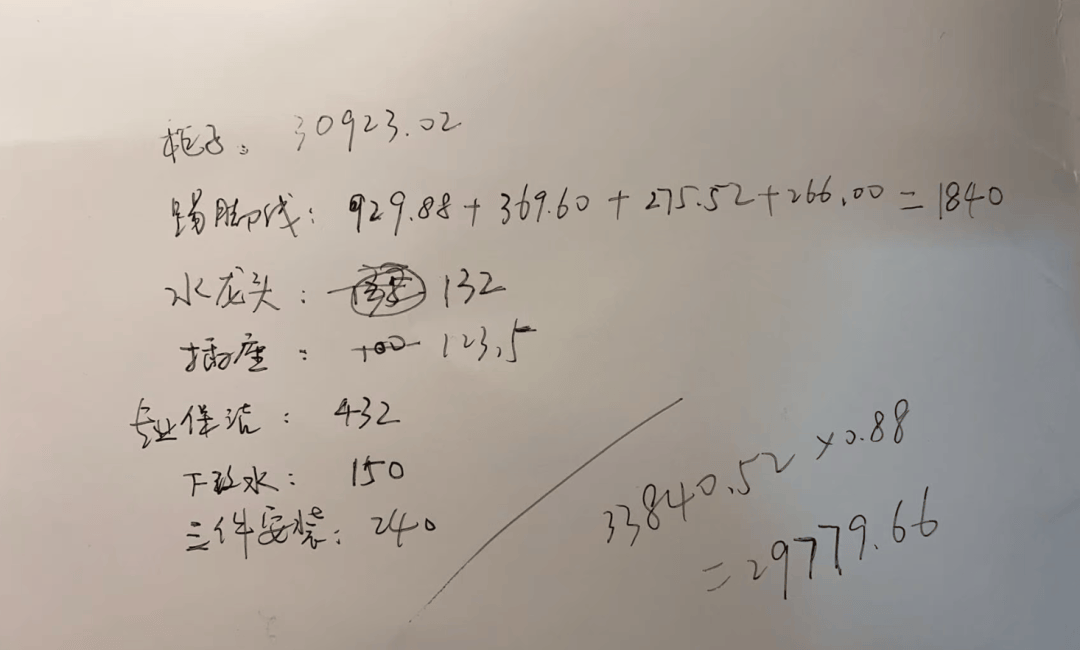 柜子: 30923.02
踢脚线: 929.88+369.60+275.52+266.00=1840
水龙头: 132
插座: 100 123.5
专业保洁: 432
下改水: 150
三件安装: 240
33840.52×0.88
=29779.66